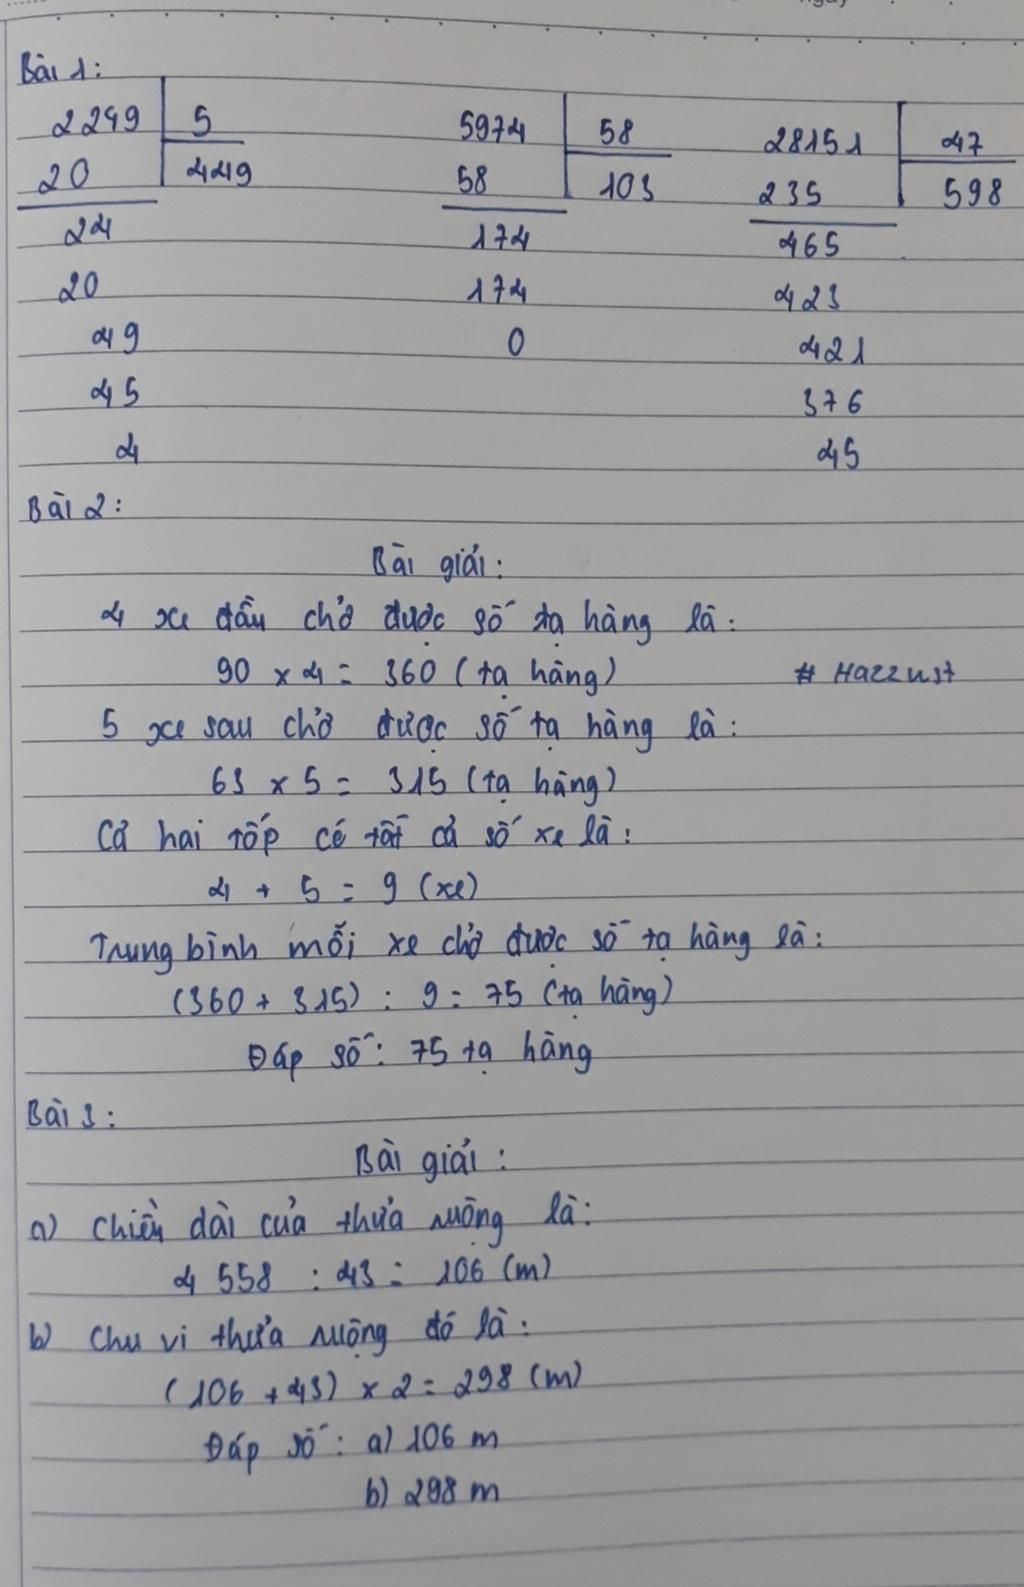 Bài 1:
2249 5 5974 58 28151 47
20 449 58 103 235 598
24 174 465
20 174 423
49 0 421
45 376
4 45
Bài 2:
Bài giải:
4 xe đầu chở được số tạ hàng là:
90 x 4 = 360 (tạ hàng) # Hazzust
5 xe sau chở được số tạ hàng là:
63 x 5 = 315 (tạ hàng)
Cả hai tốp có tất cả số xe là:
4 + 5 = 9 (xe)
Trung bình mỗi xe chở được số tạ hàng là:
(360 + 315) : 9 = 75 (tạ hàng)
Đáp số: 75 tạ hàng
Bài 3:
Bài giải:
a) Chiều dài của thửa ruộng là:
4 558 : 43 = 106 (m)
b) Chu vi thửa ruộng đó là:
(106 + 43) x 2 = 298 (m)
Đáp số: a) 106 m
b) 298 m